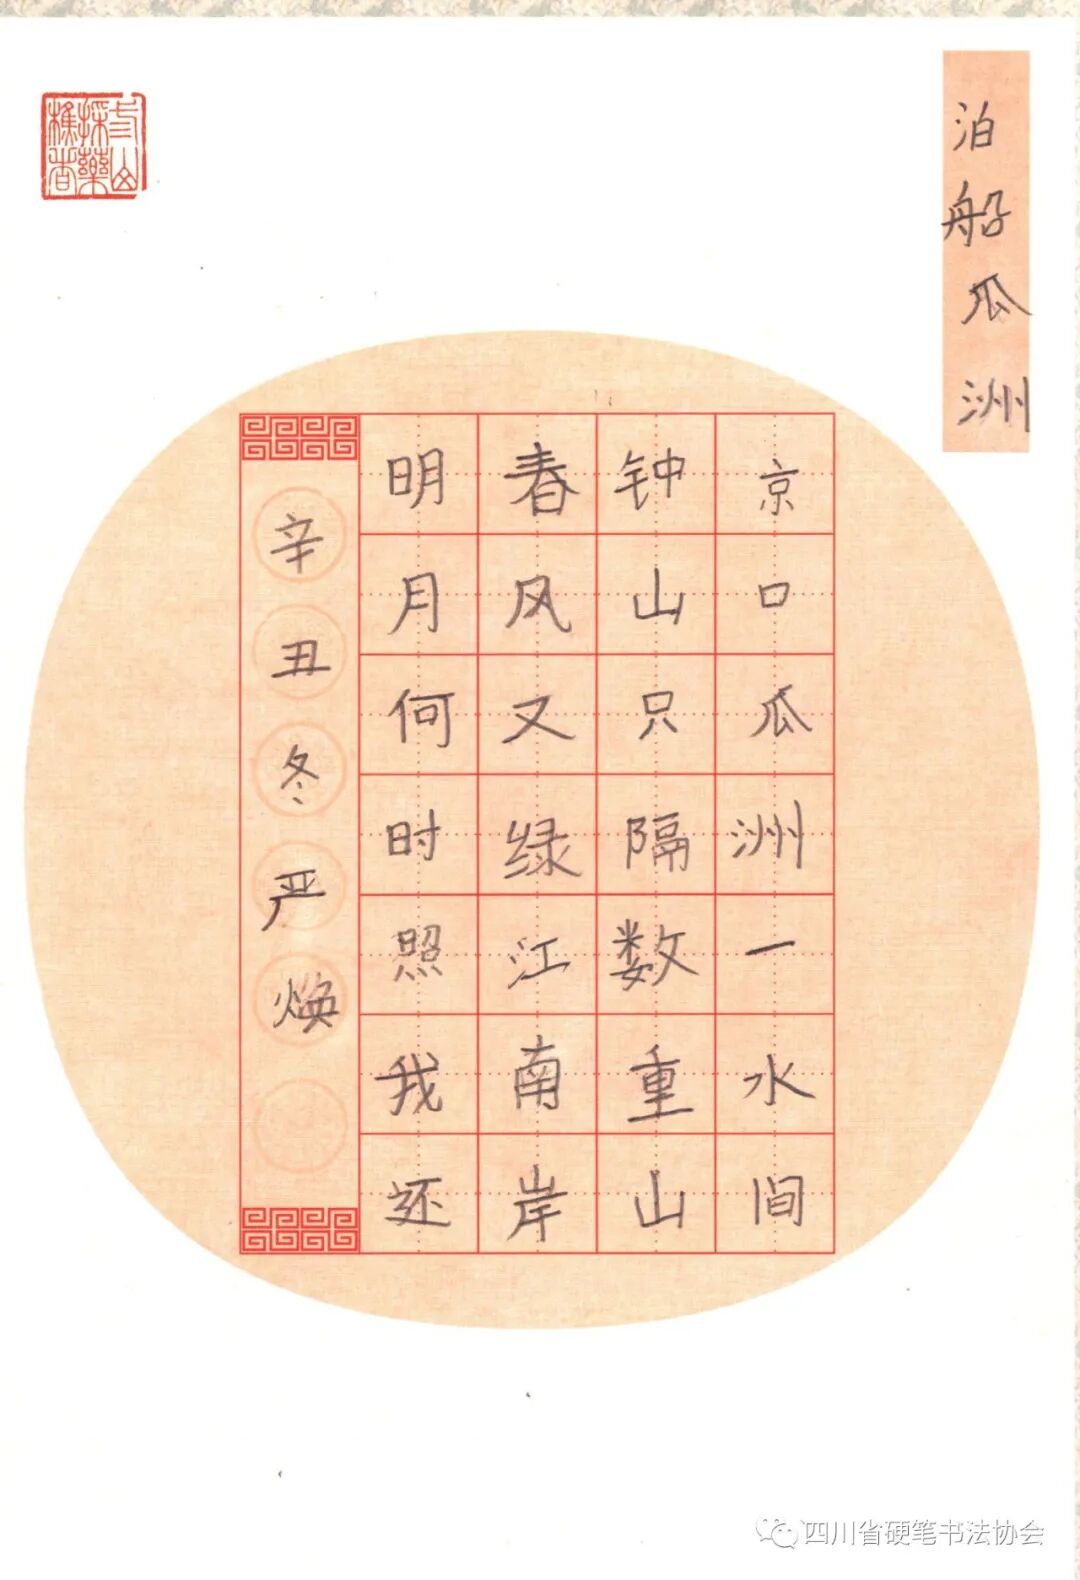 泊船瓜洲
京口瓜洲一水间
钟山只隔数重山
春风又绿江南岸
明月何时照我还
辛丑冬严焕
四川省硬笔书法协会